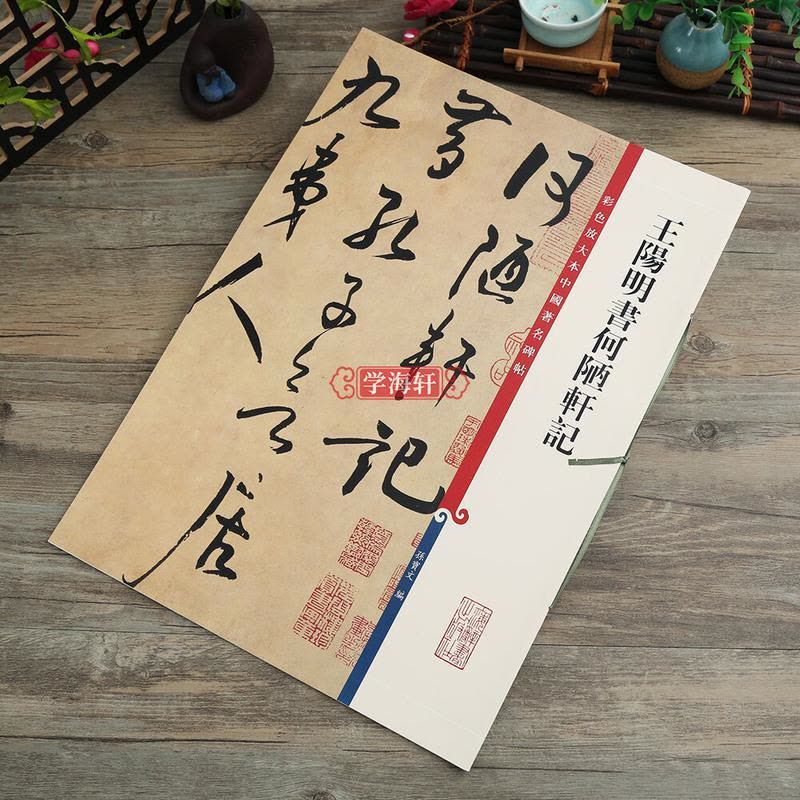 王陽明書何陋軒記
彩色放大本中國著名碑帖
孫寶文 編
何陋軒記
昔孔子欲居
九夷人
学海轩